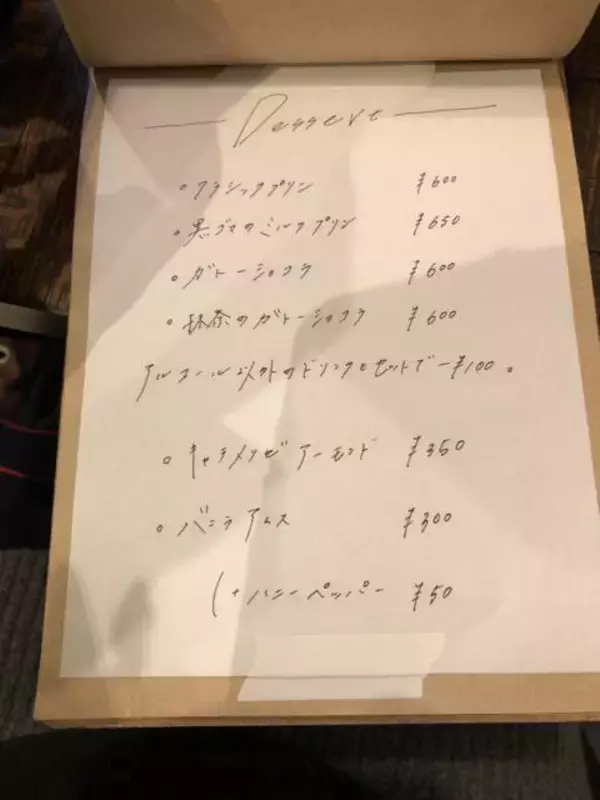 Dessert
・クラシックプリン ¥600
・黒ゴマのミルクプリン ¥650
・ガトーショコラ ¥600
・抹茶のガトーショコラ ¥600
アルコール以外のドリンクとセットで-¥100。
・キャラメリゼアーモンド ¥350
・バニラアイス ¥300
(+ハニーペッパー ¥50